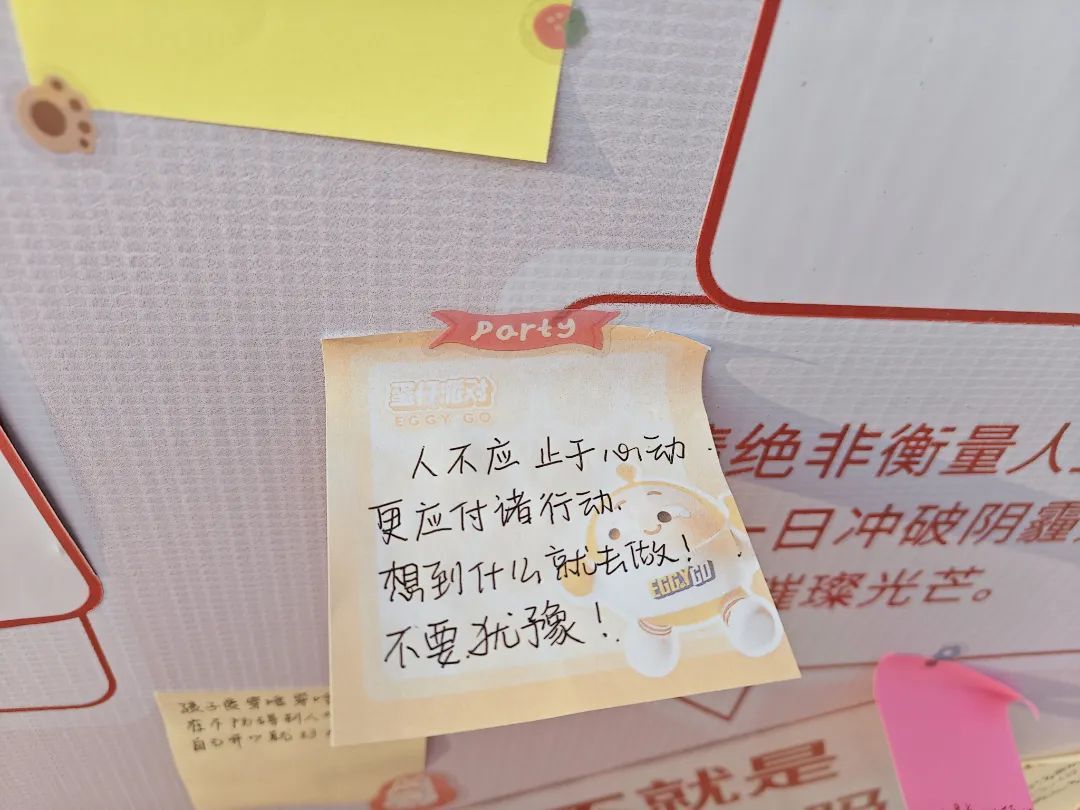 Party
蛋仔派对
EGGY GO
人不应止于心动.
更应付诸行动.
想到什么就去做!
不要犹豫!
EGGY GO
绝非衡量人
一日冲破阴霾
璀璨光芒。
在不妨碍别人
自己开心就好
就是